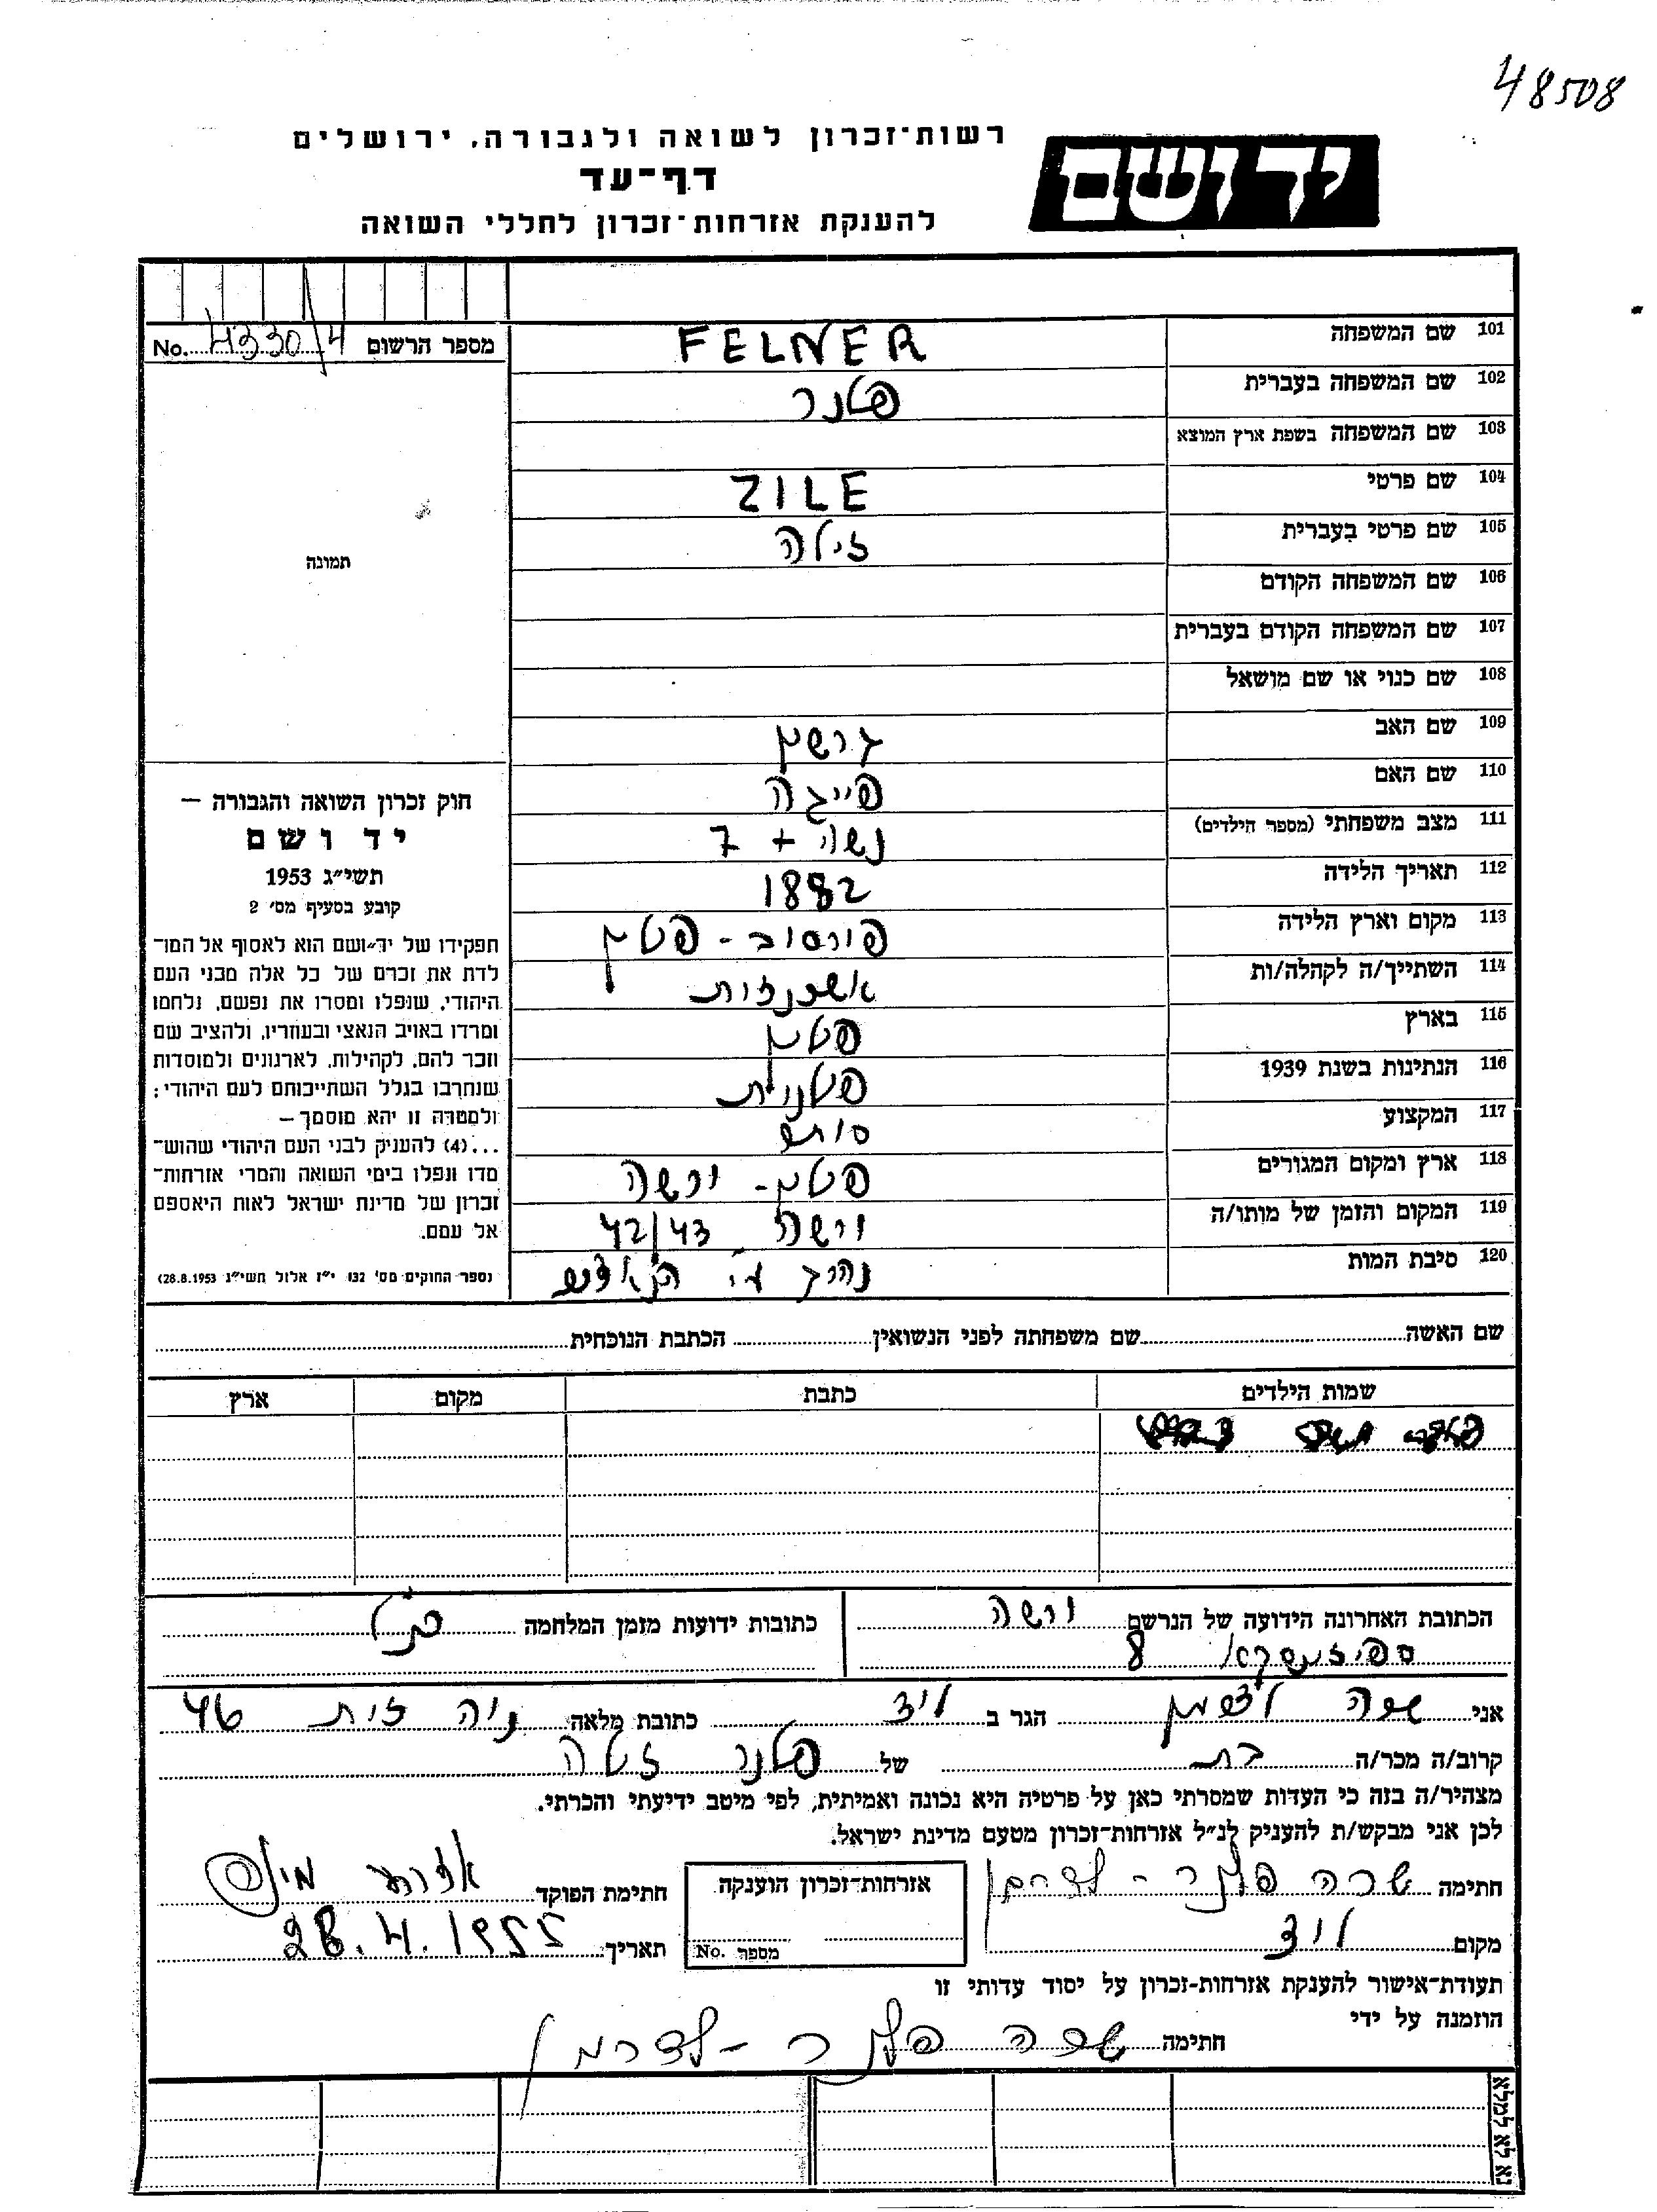 48508
ידושם
רשות־זכרון לשואה ולגבורה, ירושלים
דף־עד
להענקת אזרחות־זכרון לחללי השואה
מספר הרשום No. 4330/4
101 שם המשפחה FELNER
102 שם המשפחה בעברית פלנר
103 שם המשפחה בשפת ארץ המוצא
104 שם פרטי ZILE
105 שם פרטי בעברית זילה
106 שם המשפחה הקודם
107 שם המשפחה הקודם בעברית
108 שם כנוי או שם מושאל
109 שם האב גרשון
110 שם האם פייגה
111 מצב משפחתי (מספר הילדים) נשוי + 7
112 תאריך הלידה 1882
113 מקום וארץ הלידה פורסוב - פולין
114 השתייך/ה לקהלה/ות אשכנזית
115 בארץ פולין
116 הנתינות בשנת 1939 פולנית
117 המקצוע סוחר
118 ארץ ומקום המגורים פולין - ורשה
119 המקום והזמן של מותו/ה ורשה 42/43
120 סיבת המות נהרג ע״י הנאצים
תמונה
חוק זכרון השואה והגבורה –
יד ושם
תשי״ג 1953
קובע בסעיף מס׳ 2
תפקידו של יד־ושם הוא לאסוף אל המו־
לדת את זכרם של כל אלה מבני העם
היהודי, שנפלו ומסרו את נפשם, נלחמו
ומרדו באויב הנאצי ובעוזריו, ולהציב שם
וזכר להם, לקהילות, לארגונים ולמוסדות
שנחרבו בגלל השתייכותם לעם היהודי;
ולמטרה זו יהא מוסמך –
...(4) להעניק לבני העם היהודי שהוש־
מדו ונפלו בימי השואה והמרי אזרחות־
זכרון של מדינת ישראל לאות היאספם
אל עמם.
(ספר החוקים מס׳ 132 י״ז אלול תשי״ג 28.8.1953)
שם האשה שם משפחתה לפני הנשואין הכתבת הנוכחית
שמות הילדים כתבת מקום ארץ
הכתובת האחרונה הידועה של הנרשם ורשה
8
כתובות ידועות מזמן המלחמה כנ״ל
אני שרה לדרמן הגר ב לוד כתובת מלאה נוה זית 46
קרוב/ה מכר/ה בת של פלנר זילה
מצהיר/ה בזה כי העדות שמסרתי כאן על פרטיה היא נכונה ואמיתית, לפי מיטב ידיעתי והכרתי.
לכן אני מבקש/ת להעניק לנ״ל אזרחות־זכרון מטעם מדינת ישראל.
חתימה שרה פלנר - לדרמן
אזרחות־זכרון הוענקה
מספר No.
חתימת הפוקד
מקום לוד
תאריך 28.4.1955
תעודת־אישור להענקת אזרחות-זכרון על יסוד עדותי זו
הוזמנה על ידי
חתימה שרה פלנר - לדרמן
נא לא למלא